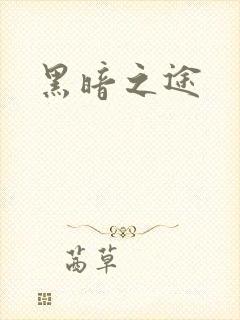 黑暗之途
茜草